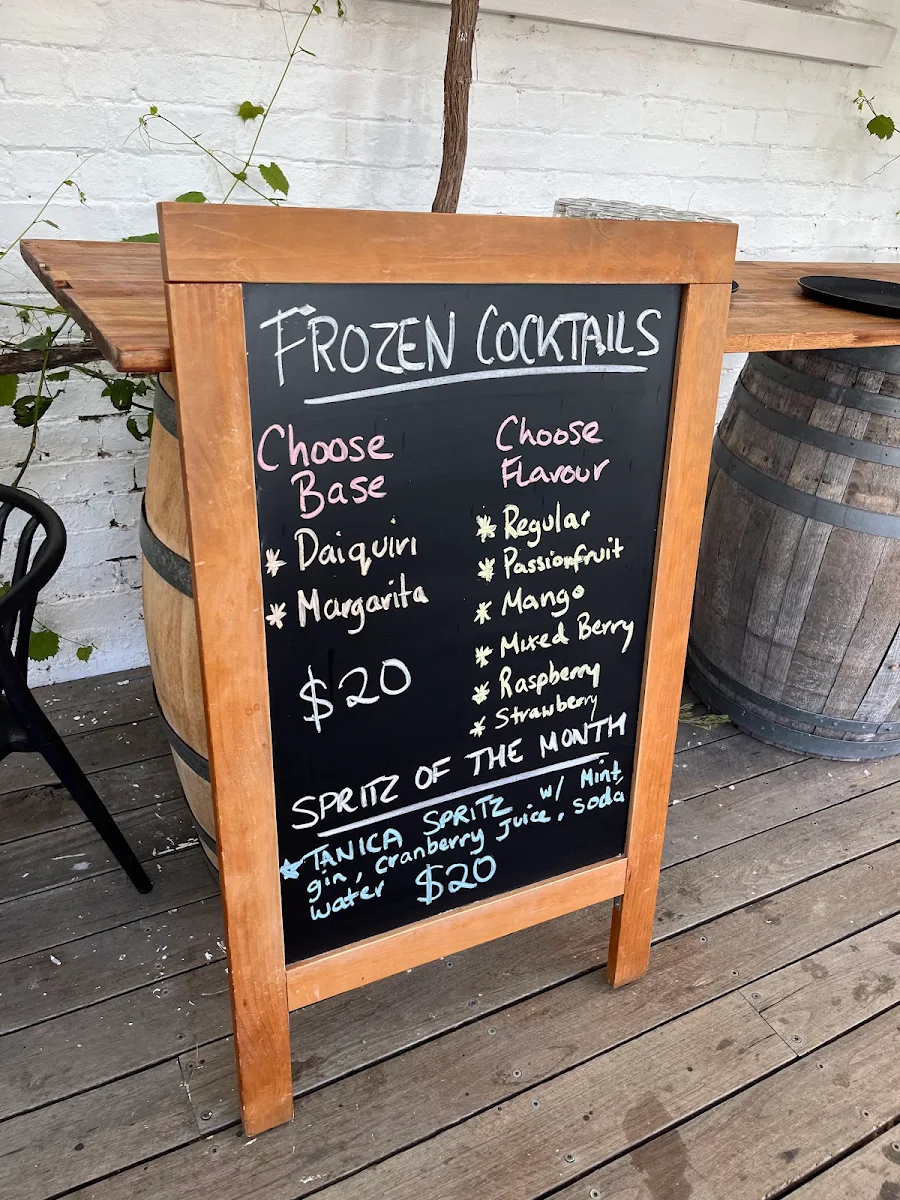 FROZEN COCKTAILS
Choose
Base
* Daiquiri
* Margarita
$20
Choose
Flavour
* Regular
* Passionfruit
* Mango
* Mixed Berry
* Raspberry
* Strawberry
SPRITZ OF THE MONTH
* TANICA SPRITZ w/ Mint
gin, cranberry juice, soda
water $20